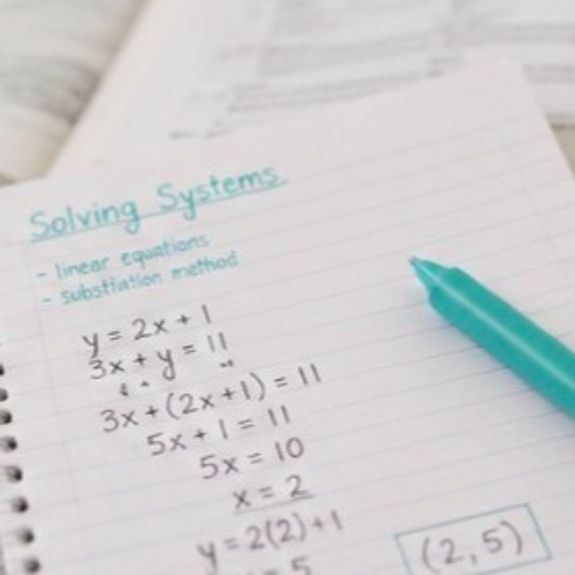 Solving Systems
- linear equations
- substiation method
y = 2x + 1
3x + y = 11
3x + (2x+1) = 11
5x + 1 = 11
5x = 10
x = 2
y = 2(2) + 1
= 5
(2, 5)